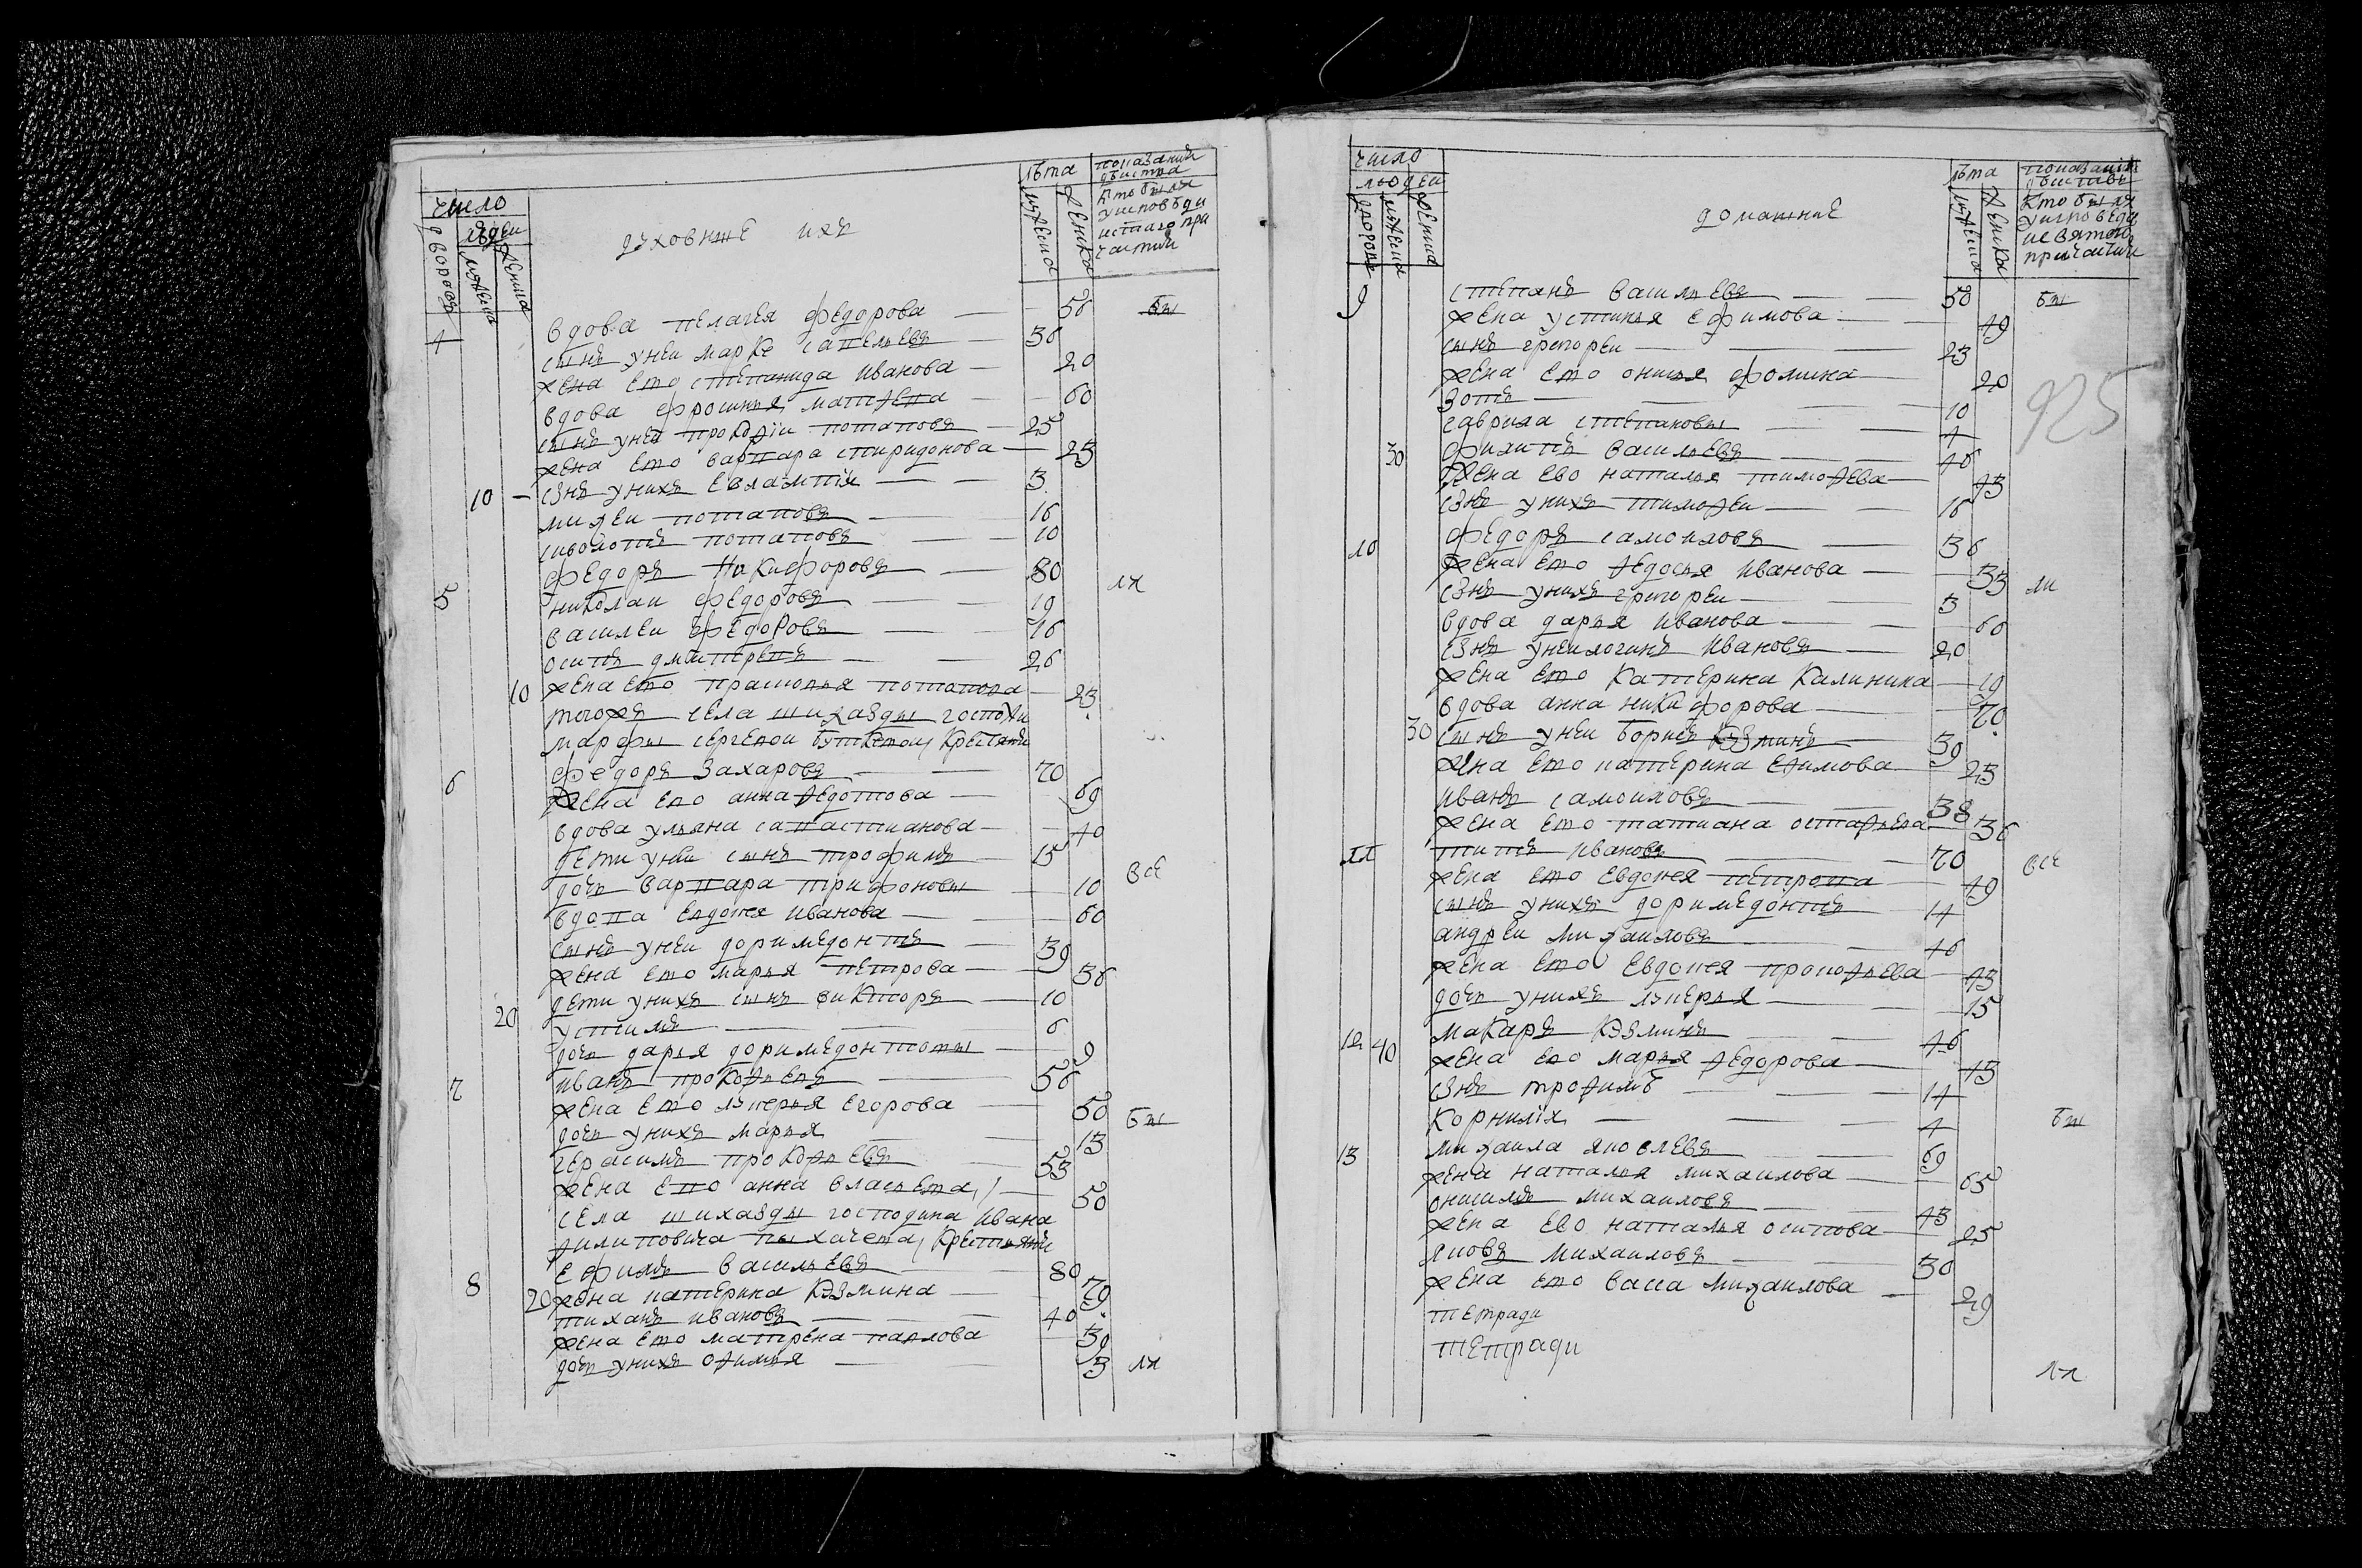 число
людеи
дворовъ
мужеска
женска
духовные ихъ
лѣта
мужеска
женска
показание
действа
Кто были
уисповѣди
исвтаго при
частия
4 вдова пелагея федорова — 56 бы
сынъ унеи марке савельевъ — 36
жена ево степанида иванова — 20
вдова фросинья матвева — 60
сынъ унеи прокофіи потаповъ — 25
жена ево варвара спиридонова — 23
10 — снъ унихъ евлампіи — 3
михеи потаповъ — 16
потаповъ — 10
5 федоръ никифоровъ — 80
николаи федоровъ — 19
василеи федоровъ — 16
осипъ дмитревъ — 26
10 жена ево прасковья потапова — 23
тогожъ села шихазды госпожи
марфы сергевои крестьяне
6 федоръ захаровъ — 70
жена ево анна федотова — 69
вдова ульяна савастианова — 40
дети унеи сынъ трофимъ — 15
дочь варвара трифоновы — 10 все
вдова евдокея иванова — 60
сынъ унеи доримедонтъ — 39
жена ево марья петрова — 36
дети унихъ сынъ викторъ — 10
20 устимъ — 6
дочь дарья доримедонтовы — 9
7 иванъ прокофьевъ — 56
жена ево лукерья егорова — 50
дочь унихъ марья — 13 бы
герасимъ прокофьевъ — 53
жена ево анна власьева — 50
села шихазды господина ивана
филиповича крестьяне
8 ефимъ васильевъ — 80
20 жена катерина кузмина — 79
тиханъ ивановъ — 40
жена ево матрена павлова — 39
дочь унихъ офимья — 3 ли
число
людеи
дворовъ
мужеска
женска
домашние
лѣта
мужеска
женска
показание
действъ
Кто были
уисповеди
исвятого
причастия
9 степанъ васильевъ — 50 бы
жена устинья ефимова — 49
сынъ григореи — 23
жена ево онисья фомина — 20
925
зотъ — 10
гаврила степановы — 4
30 филипъ васильевъ — 46
жена ево наталья тимофева — 43
снъ унихъ тимофеи — 16
10 федоръ самоиловъ — 36
жена ево федосья иванова — 33
снъ унихъ григореи — 3 ли
вдова дарья иванова — 60
снъ унеи логинъ ивановъ — 20
жена ево катерина калинина — 19
вдова анна никифорова — 70
30 сынъ унеи борисъ кузминъ — 39
жена ево катерина ефимова — 23
иванъ самоиловъ — 38
жена ево татиана остафьева — 36
11 титъ ивановъ — 70
жена ево евдокея петрова — 49 все
сынъ унихъ доримедонтъ — 14
андреи михаиловъ — 46
жена ево евдокея прокофьева — 43
дочь унихъ лукерья — 15
12 40 макаръ кузминъ — 46
жена ево марья федорова — 43
снъ трофимъ — 14
корнилія — 4 бы
13 михаила яковлевъ — 69
жена наталья михаилова — 65
онисимъ михаиловъ — 43
жена ево наталья осипова — 25
яковъ михаиловъ — 30
жена ево васса михаилова — 29
тетради
тетради
ли